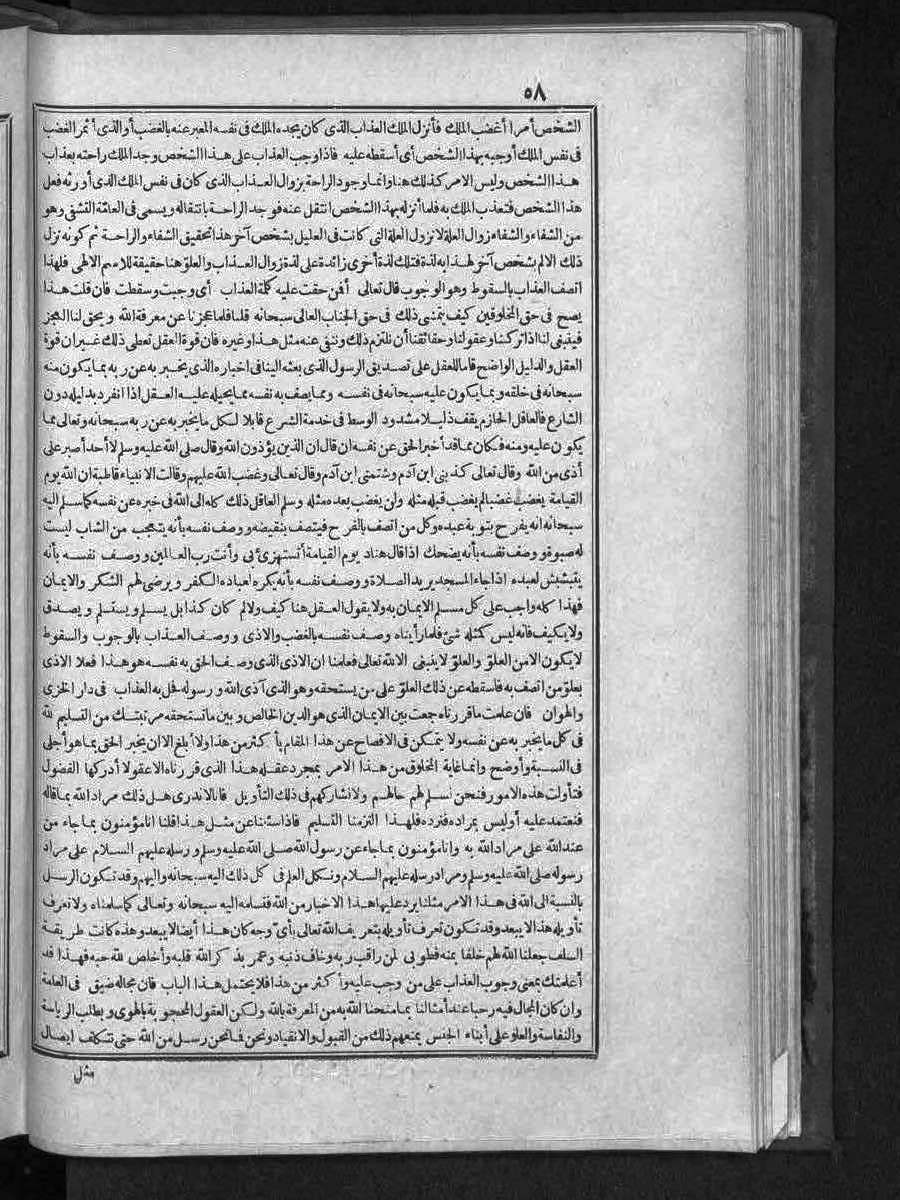 ٥٨
الشخص أمرا أغضب الملك فأنزل الملك العذاب الذى كان يجده الملك فى نفسه المعبر عنه بالغضب أو الذى أثمر الغضب
فى نفس الملك أوجبه بهذا الشخص أى أسقطه عليه فاذا وجب العذاب على هذا الشخص وجد الملك راحته بعذاب
هذا الشخص وليس الامر كذلك هنا وانما وجود الراحة بزوال العذاب الذى كان فى نفس الملك الذى أورثه فعل
هذا الشخص فتعذب الملك به فلما أنزله بهذا الشخص انتقل عنه فوجد الراحة بانتقاله ويسمى فى العامّة التشفى وهو
من الشفاء والشفاء زوال العلة لا نزول العلة التى كانت فى العليل بشخص آخر هذا تحقيق الشفاء والراحة ثم كونه نزل
ذلك الالم بشخص آخر لهذا به لذة فتلك لذة أخرى زائدة على لذة زوال العذاب والعلوّ هنا حقيقة للاسم الالهى فلهذا
اتصف العذاب بالسقوط وهو الوجوب قال تعالى أفمن حقت عليه كلمة العذاب أى وجبت وسقطت فان قلت هذا
يصح فى حق المخلوقين كيف يتمشى ذلك فى حق الجناب العالى سبحانه قلنا فلما عجزنا عن معرفة الله ويحق لنا العجز
فينبغى لنا اذا تركنا وعقولنا وحقائقنا أن نلتزم ذلك وننفى عنه مثل هذا وغيره فان قوة العقل تعطى ذلك غير ان قوة
العقل والدليل الواضح قاما للعقل على تصديق الرسول الذى بعثه الينا فى اخباره الذى يخبر به عن ربه بما يكون منه
سبحانه فى خلقه وبما يكون عليه سبحانه فى نفسه وبما يصف به نفسه مما يحيله عليه العقل اذا انفرد بدليله دون
الشارع فالعاقل الحازم يقف ذليلا مشدود الوسط فى خدمة الشرع قابلا لكل ما يخبر به عن ربه سبحانه وتعالى مما
يكون عليه ومنه فكان مما قد أخبر الحق عن نفسه ان قال ان الذين يؤذون الله وقال صلى الله عليه وسلم لا أحد أصبر على
أذى من الله وقال تعالى كذبنى ابن آدم وشتمنى ابن آدم وقال تعالى وغضب الله عليهم وقالت الانبياء قاطبة ان الله يوم
القيامة يغضب غضبا لم يغضب قبله مثله ولن يغضب بعده مثله وسلم العاقل ذلك كله الى الله فى خبره عن نفسه كما سلم اليه
سبحانه انه يفرح بتوبة عبده وكل من اتصف بالفرح فيتصف بنقيضه ووصف نفسه بأنه يتعجب من الشاب ليست
له صبوة ووصف نفسه بأنه يضحك اذا قال هناد يوم القيامة أتستهزئ بى وأنت رب العالمين ووصف نفسه بأنه
يتبشبش لعبده اذا جاء المسجد يريد الصلاة ووصف نفسه بأنه يكره لعباده الكفر ويرضى لهم الشكر والايمان
فهذا كله واجب على كل مسلم الايمان به ولا يقول العقل هنا كيف ولا لم كان كذا بل يسلم ويستسلم ويصدق
ولا يكيف فانه ليس كمثله شئ فلما رأيناه وصف نفسه بالغضب والاذى ووصف العذاب بالوجوب والسقوط
لا يكون الا من العلوّ والعلوّ لا ينبغى الا لله تعالى فعلمنا ان الاذى الذى وصف الحق به نفسه هو هذا فعلا الاذى
بعلوّ من اتصف به فاسقطه عن ذلك العلوّ على من يستحقه وهو الذى آذى الله ورسوله فحل به العذاب فى دار الخزى
والهوان فان علمت ما قررناه جمعت بين الايمان الذى هو الدين الخالص وبين ما تستحقه مرتبتك من التسليم لله
فى كل ما يخبر به عن نفسه ولا يتمكن فى الافصاح عن هذا المقام بأكثر من هذا ولا أبلغ الا ان يخبر الحق بما هو أجلى
فى النسبة وأوضح وانما غاية المخلوق من هذا الامر بمجرد عقله هذا الذى قررناه الا عقولا أدركها الفضول
فتأولت هذه الامور فنحن نسلم لهم حالهم ولا نشاركهم فى ذلك التأويل فانا لا ندرى هل ذلك مراد الله بما قاله
فنعتمد عليه أو ليس بمراده فنرده فلهذا التزمنا التسليم فاذا سئلنا عن مثل هذا قلنا انا مؤمنون بما جاء من
عند الله على مراد الله به وانا مؤمنون بما جاء عن رسول الله صلى الله عليه وسلم ورسله عليهم السلام على مراد
رسوله صلى الله عليه وسلم ومراد رسله عليهم السلام ونكل العلم فى كل ذلك اليه سبحانه واليهم وقد تكون الرسل
بالنسبة الى الله فى هذا الامر مثلنا يرد عليها هذا الاخبار من الله فتسلمه اليه سبحانه وتعالى كما سلمناه ولا تعرف
تأويله هذا لا يبعد وقد تكون تعرف تأويله بتعريف الله تعالى بأىّ وجه كان هذا أيضا لا يبعد وهذه كانت طريقة
السلف جعلنا الله لهم خلفا بمنه فطوبى لمن راقب ربه وخاف ذنبه وعمر بذكر الله قلبه وأخلص لله حبه فهذا قد
أعلمتك بمعنى وجوب العذاب على من وجب عليه وأكثر من هذا فلا يحتمل هذا الباب فان مجاله ضيق فى العامة
وان كان المجال فيه رحبا عند أمثالنا بما منحنا الله به من المعرفة بالله ولكن العقول المحجوبة بالهوى وبطلب الرياسة
والنفاسة والعلوّ على أبناء الجنس يمنعهم ذلك من القبول والانقياد ونحن فما نحن رسل من الله حتى نتكلف ايصال
مثل